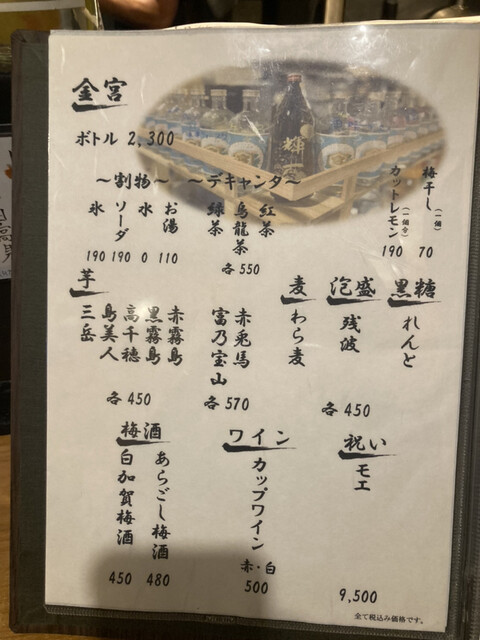 金宮
ボトル 2,300
～割物～
お湯 110
水 0
ソーダ 190
氷 190
～デキャンタ～
紅茶
烏龍茶
緑茶
各 550
梅干し(一個) 70
カットレモン(一個分) 190
芋
赤霧島
黒霧島
高千穂
島美人
三岳
各 450
赤兎馬
富乃宝山
各 570
麦
わら麦
泡盛
残波
黒糖
れんと
各 450
梅酒
あらごし梅酒 480
白加賀梅酒 450
ワイン
カップワイン
赤・白
500
祝い
モエ
9,500
全て税込み価格です。